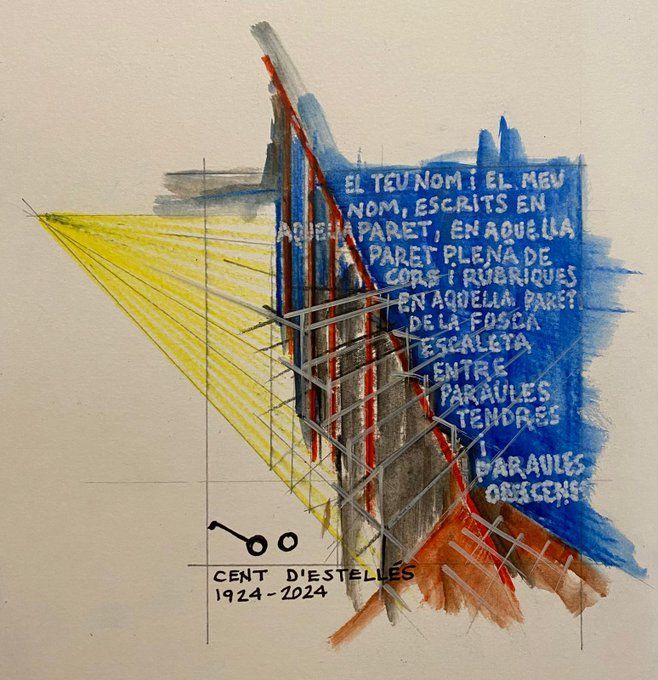 EL TEU NOM I EL MEU
NOM, ESCRITS EN
AQUELLA PARET, EN AQUELLA
PARET PLENA DE
CORS I RÚBRIQUES
EN AQUELLA PARET
DE LA FOSCA
ESCALETA
ENTRE
PARAULES
TENDRES
I
PARAULES
OBSCENES
100
CENT D'ESTELLÉS
1924-2024